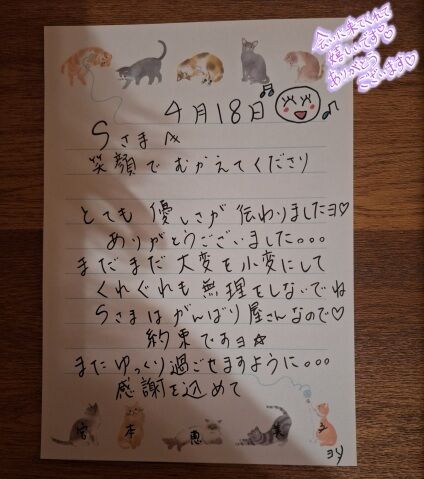 会いに来てくれて
嬉しいです♡
ありがとう
ございます♡
4月18日
Sさま
笑顔でむかえてくださり
とても優しさが伝わりましたヨ♡
ありがとうございました。。。
まだまだ大変を小変にして
くれぐれも無理をしないでね
Sさまはがんばり屋さんなので♡
約束ですョ☆
またゆっくり過ごせますように。。。
感謝を込めて
宮本恵美
ヨリ